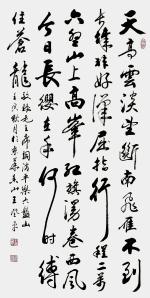 天高雲淡望斷南飛雁不到
長城非好漢屈指行程二萬
六盤山上高峰紅旗漫卷西風
今日長纓在手何時縛
住蒼龍
毛主席詞清平樂六盤山